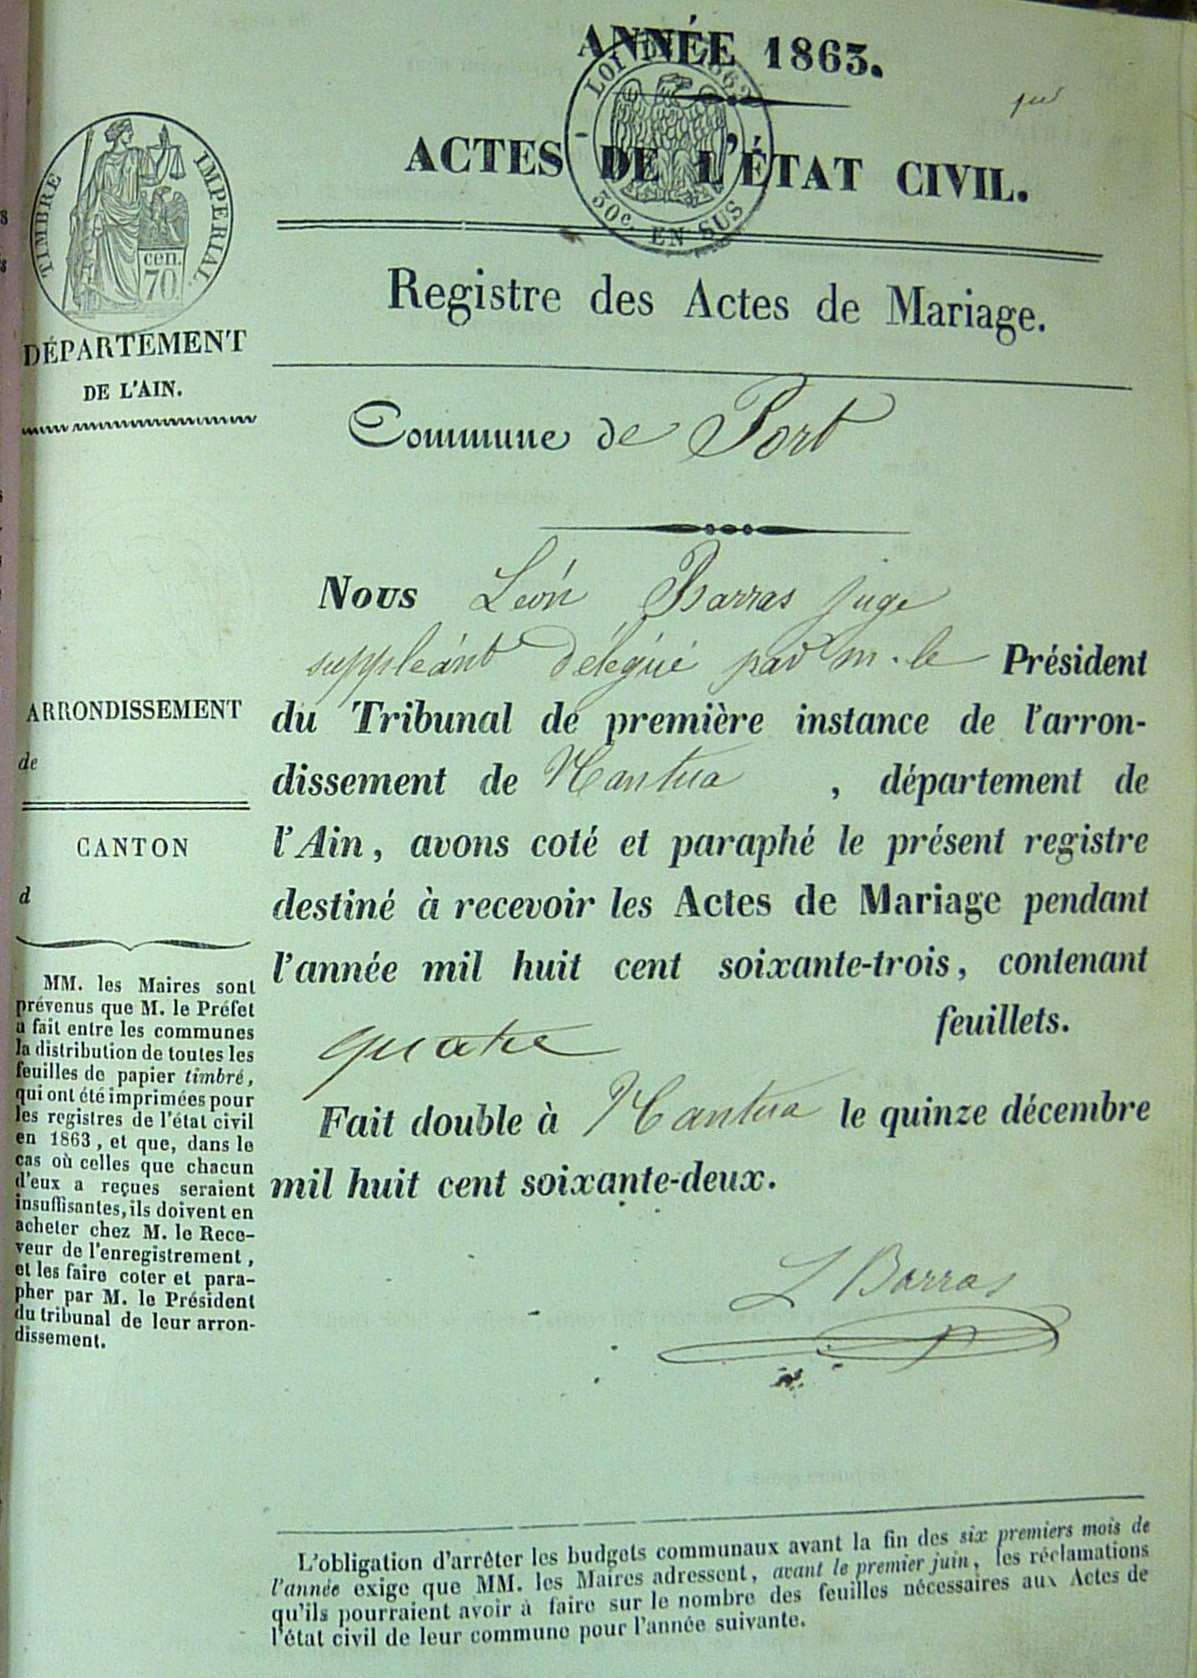 ANNÉE 1863.
ACTES DE L'ÉTAT CIVIL.
LOI 1862
50c. EN SUS
TIMBRE IMPERIAL
cen.
70
Registre des Actes de Mariage.
DÉPARTEMENT
DE L'AIN.
Commune de Port
Nous Léon Barras juge
suppléant délégué par m. le Président
du Tribunal de première instance de l'arron-
dissement de Nantua , département de
l'Ain, avons coté et paraphé le présent registre
destiné à recevoir les Actes de Mariage pendant
l'année mil huit cent soixante-trois, contenant
quatre feuillets.
Fait double à Nantua le quinze décembre
mil huit cent soixante-deux.
L Barras
ARRONDISSEMENT
de
CANTON
d
MM. les Maires sont
prévenus que M. le Préfet
a fait entre les communes
la distribution de toutes les
feuilles de papier timbré,
qui ont été imprimées pour
les registres de l'état civil
en 1863, et que, dans le
cas où celles que chacun
d'eux a reçues seraient
insuffisantes, ils doivent en
acheter chez M. le Rece-
veur de l'enregistrement,
et les faire coter et para-
pher par M. le Président
du tribunal de leur arron-
dissement.
L'obligation d'arrêter les budgets communaux avant la fin des six premiers mois de
l'année exige que MM. les Maires adressent, avant le premier juin, les réclamations
qu'ils pourraient avoir à faire sur le nombre des feuilles nécessaires aux Actes de
l'état civil de leur commune pour l'année suivante.